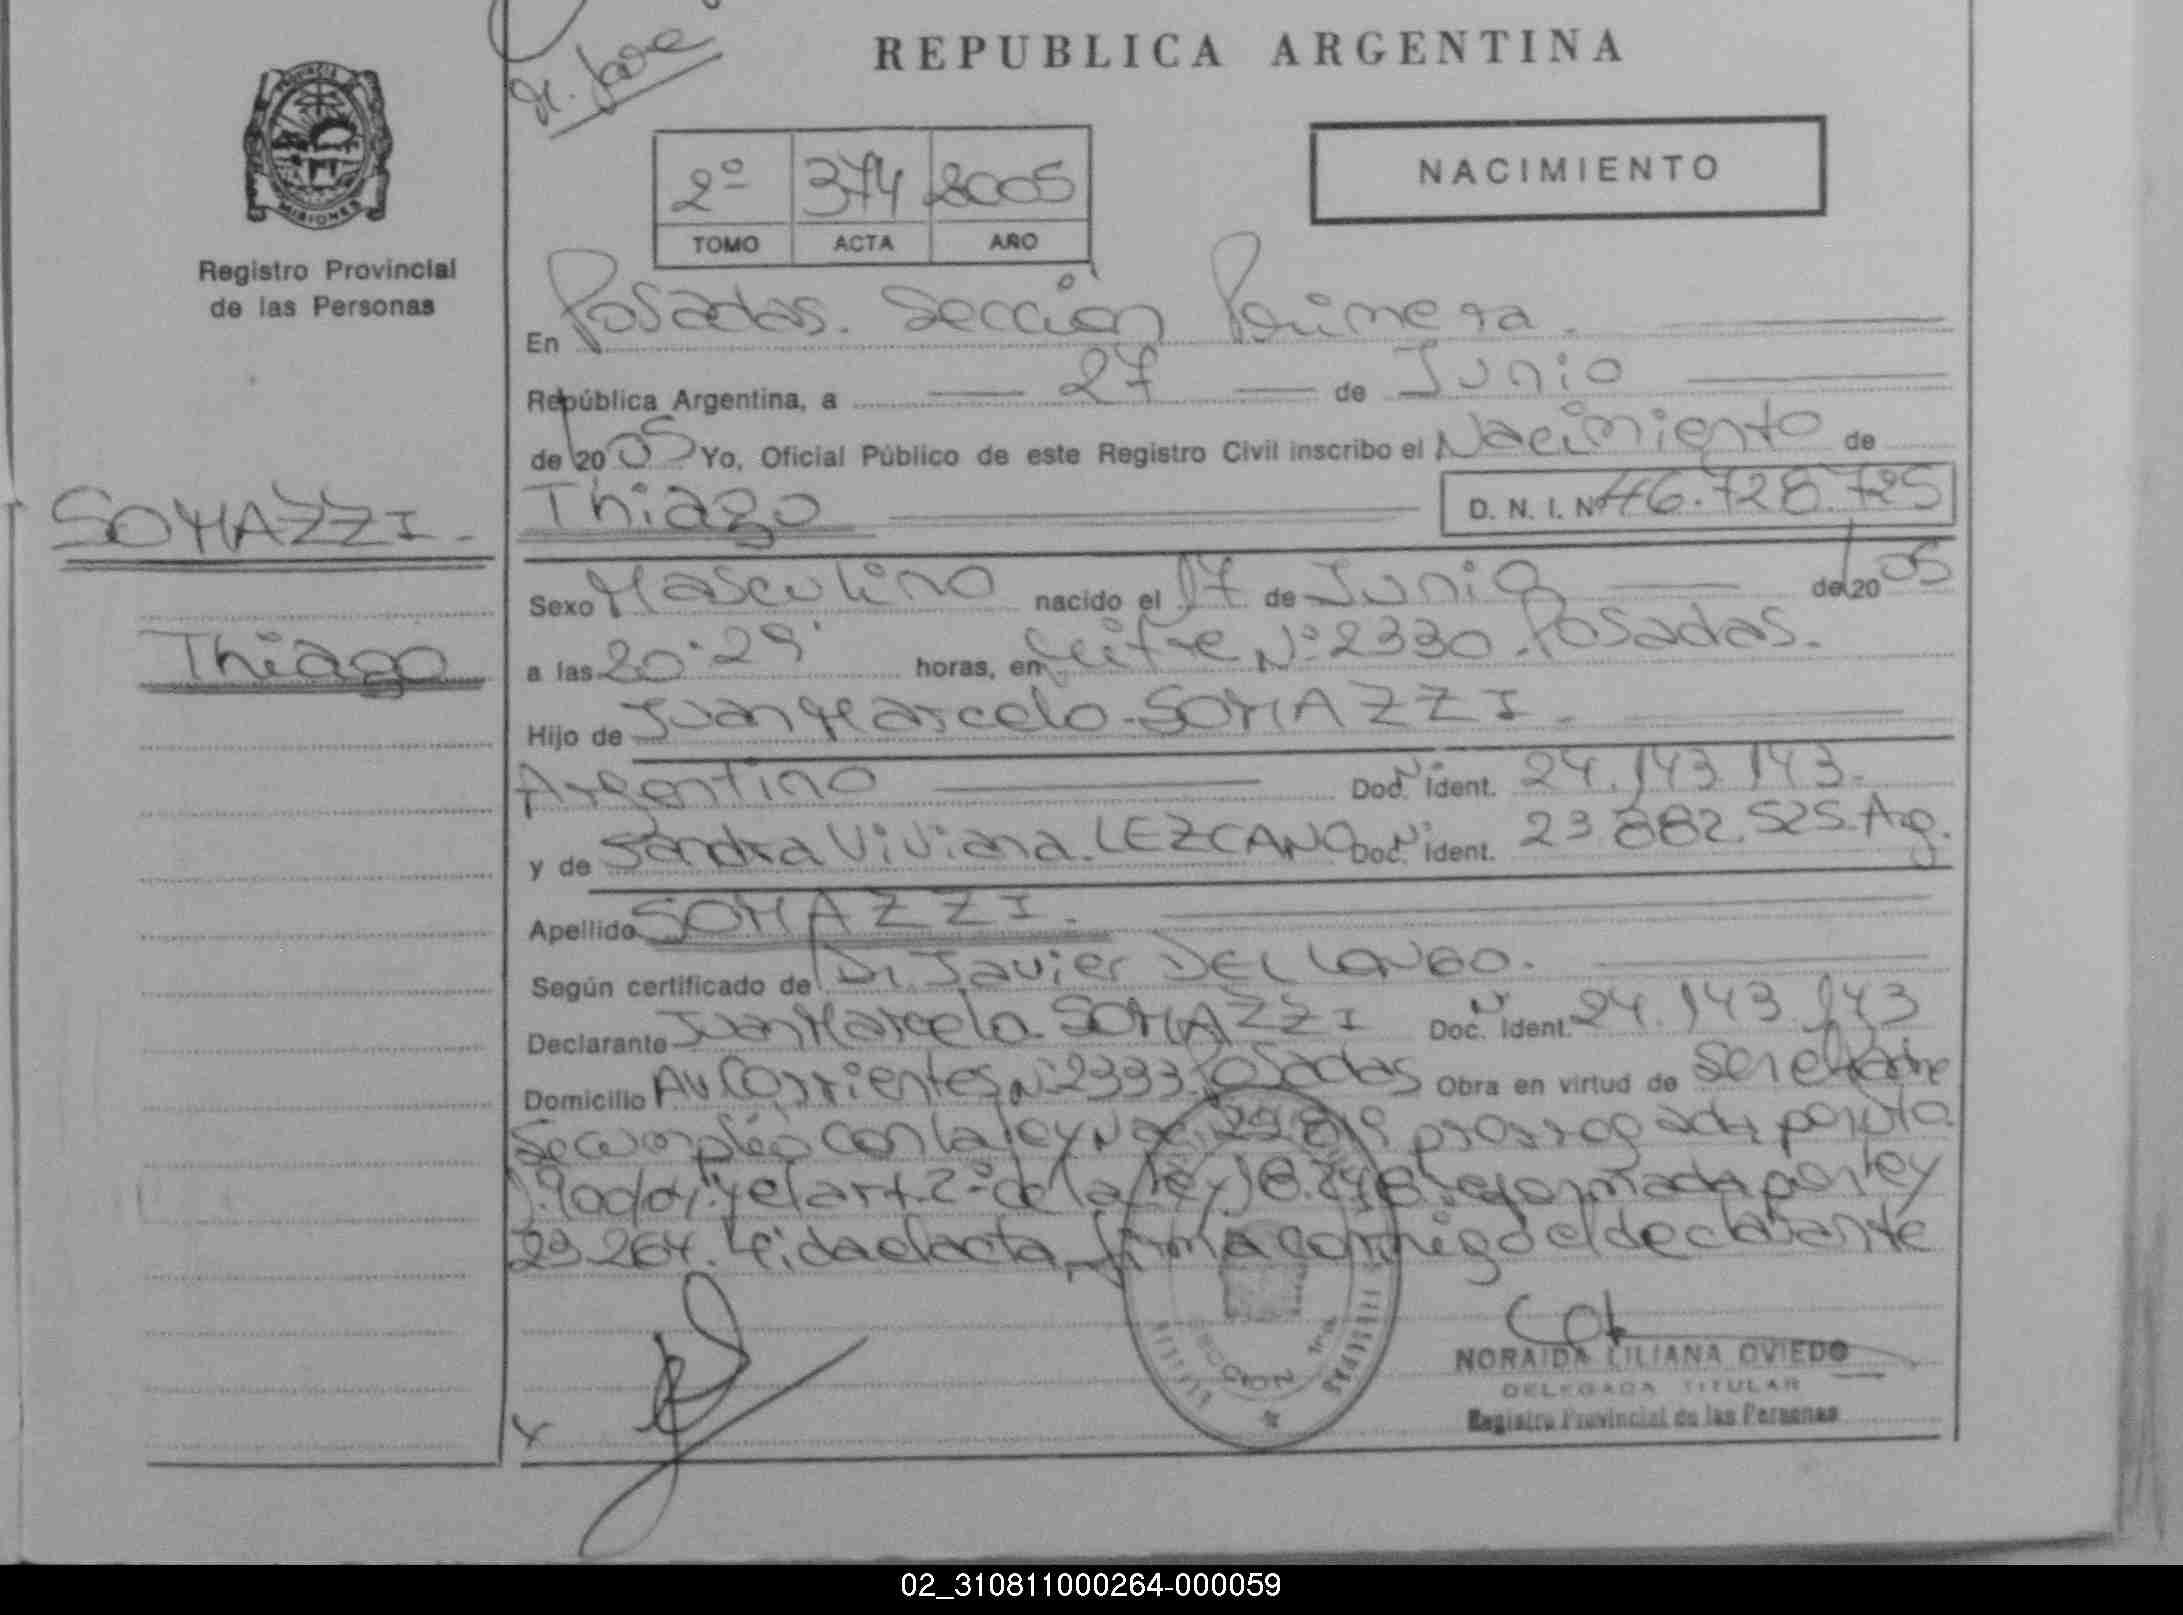 REPUBLICA ARGENTINA
PROVINCIA DE MISIONES
Registro Provincial
de las Personas
2º 374 2005
TOMO ACTA AÑO
NACIMIENTO
En Posadas. Sección Primera.
República Argentina, a 27 de Junio
de 2005 Yo, Oficial Público de este Registro Civil inscribo el Nacimiento de
Thiago D. N. I. Nº 46.728.725
SOMAZZI.
Thiago
Sexo Masculino nacido el 17 de Junio de 2005
a las 20:29' horas, en Nº 2330. Posadas.
Hijo de Juan Marcelo SOMAZZI.
Argentino Doc. Nº Ident. 24.143.143.
y de Sandra Viviana LEZCANO Doc. Nº Ident. 23.882.525. Arg.
Apellido SOMAZZI.
Según certificado de Dr. Javier DEL LONGO.
Declarante Juan Marcelo SOMAZZI Doc. Nº Ident. 24.143.143
Domicilio Av Corrientes Nº 2393. Posadas Obra en virtud de ser el Padre
Se cumplió con la ley Nac. prorrogada por
y el art. 2º de la ley 18.248 reformada por ley
23.264. Leida el acta, firma conmigo el declarante
NORAIDA LILIANA OVIEDO
DELEGADA TITULAR
Registro Provincial de las Personas
02_310811000264-000059